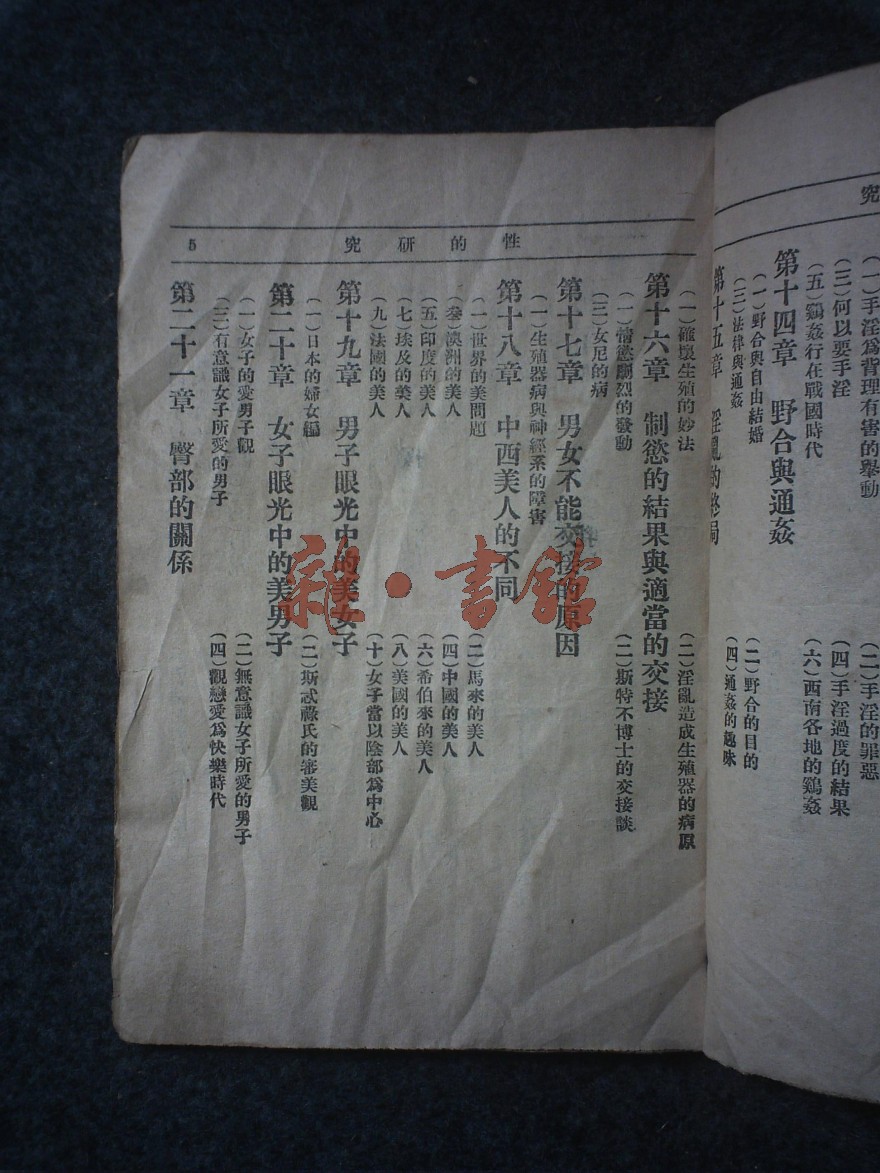 究
(一)手淫爲背理有害的舉動
(二)手淫的罪惡
(三)何以要手淫
(四)手淫過度的結果
(五)鷄姦行在戰國時代
(六)西南各地的鷄姦
第十四章 野合與通姦
(一)野合與自由結婚
(二)野合的目的
(三)法律與通姦
(四)通姦的趣味
第十五章 淫亂的終局
性的研究
5
(一)確壞生殖的妙法
(二)淫亂造成生殖器的病原
第十六章 制慾的結果與適當的交接
(一)情慾劇烈的發動
(二)斯特不博士的交接談
(三)女尼的病
第十七章 男女不能交接的原因
(一)生殖器病與神經系的障害
第十八章 中西美人的不同
(一)世界的美問題
(二)馬來的美人
(叁)澳洲的美人
(四)中國的美人
(五)印度的美人
(六)希伯來的美人
(七)埃及的美人
(八)美國的美人
(九)法國的美人
(十)女子當以陰部爲中心
第十九章 男子眼光中的美女子
(一)日本的婦女編
(二)斯忒蘇氏的審美觀
第二十章 女子眼光中的美男子
(一)女子的愛男子觀
(二)無意識女子所愛的男子
(三)有意識女子所愛的男子
(四)觀戀愛爲快樂時代
第二十一章 臀部的關係
雜·書館